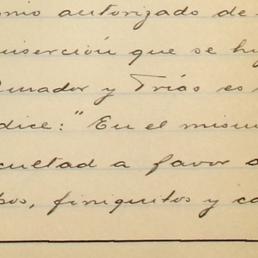 onio autorizado de
inserción que se hi
Amador y Trías es
dice: "En el mism
cultad a favor d
bos, finiquitos y ca